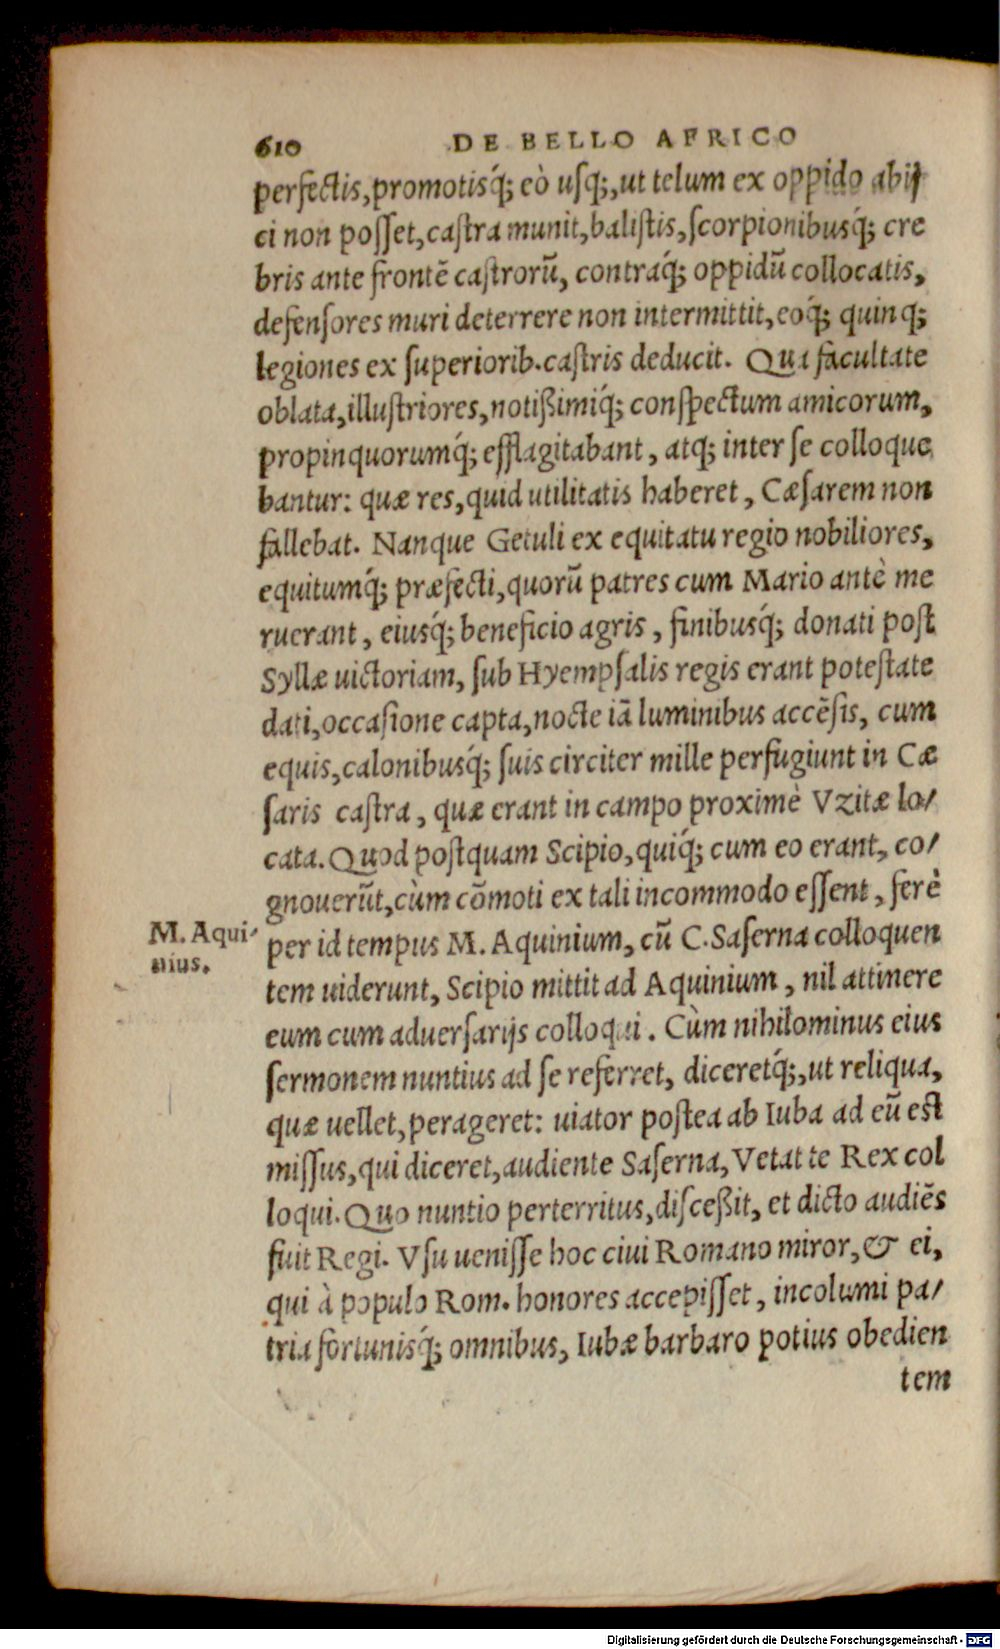 610 DE BELLO AFRICO
perfectis, promotisq́; eò usq;, ut telum ex oppido abij
ci non posset, castra munit, balistis, scorpionibusq́; cre
bris ante frontē castrorū, contraq́; oppidū collocatis,
defensores muri deterrere non intermittit, eoq́; quinq;
legiones ex superiorib. castris deducit. Qua facultate
oblata, illustriores, notißimiq́; conspectum amicorum,
propinquorumq́; efflagitabant, atq; inter se colloque
bantur: quæ res, quid utilitatis haberet, Cæsarem non
fallebat. Nanque Getuli ex equitatu regio nobiliores,
equitumq́; præfecti, quorū patres cum Mario antè me
ruerant, eiusq́; beneficio agris, finibusq́; donati post
Syllæ uictoriam, sub Hyempsalis regis erant potestate
dati, occasione capta, nocte iā luminibus accēsis, cum
equis, calonibusq́; suis circiter mille perfugiunt in Cæ
saris castra, quæ erant in campo proximè Vzitæ lo/
cata. Quod postquam Scipio, quiq́; cum eo erant, co/
gnouerūt, cùm cōmoti ex tali incommodo essent, ferè
M. Aqui/
nius.
per id tempus M. Aquinium, cū C. Saserna colloquen
tem uiderunt, Scipio mittit ad Aquinium, nil attinere
eum cum aduersarijs colloqui. Cùm nihilominus eius
sermonem nuntius ad se referret, diceretq́;, ut reliqua,
quæ uellet, perageret: uiator postea ab Iuba ad eū est
missus, qui diceret, audiente Saserna, Vetat te Rex col
loqui. Quo nuntio perterritus, disceßit, et dicto audiēs
fuit Regi. Vsu uenisse hoc ciui Romano miror, & ei,
qui à populo Rom. honores accepisset, incolumi pa/
tria fortunisq́; omnibus, Iubæ barbaro potius obedien
tem
Digitalisierung gefördert durch die Deutsche Forschungsgemeinschaft - DFG